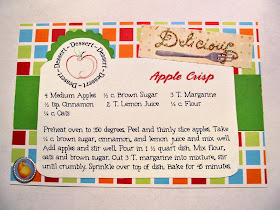 Dessert - Dessert - Dessert - Dessert - Dessert - Dessert -
Delicious
Apple Crisp
4 Medium Apples ½ c. Brown Sugar 3 T. Margarine
½ tsp. Cinnamon 2 T. Lemon Juice ¼ c. Flour
¼ c. Oats
Preheat oven to 350 degrees. Peel and thinly slice apples. Take
¼ c. brown sugar, cinnamon, and lemon juice and mix well.
Add apples and stir well. Pour in 1 ½ quart dish. Mix flour,
oats and brown sugar. Cut 3 T. margarine into mixture, stir
until crumbly. Sprinkle over top of dish. Bake for 45 minutes.